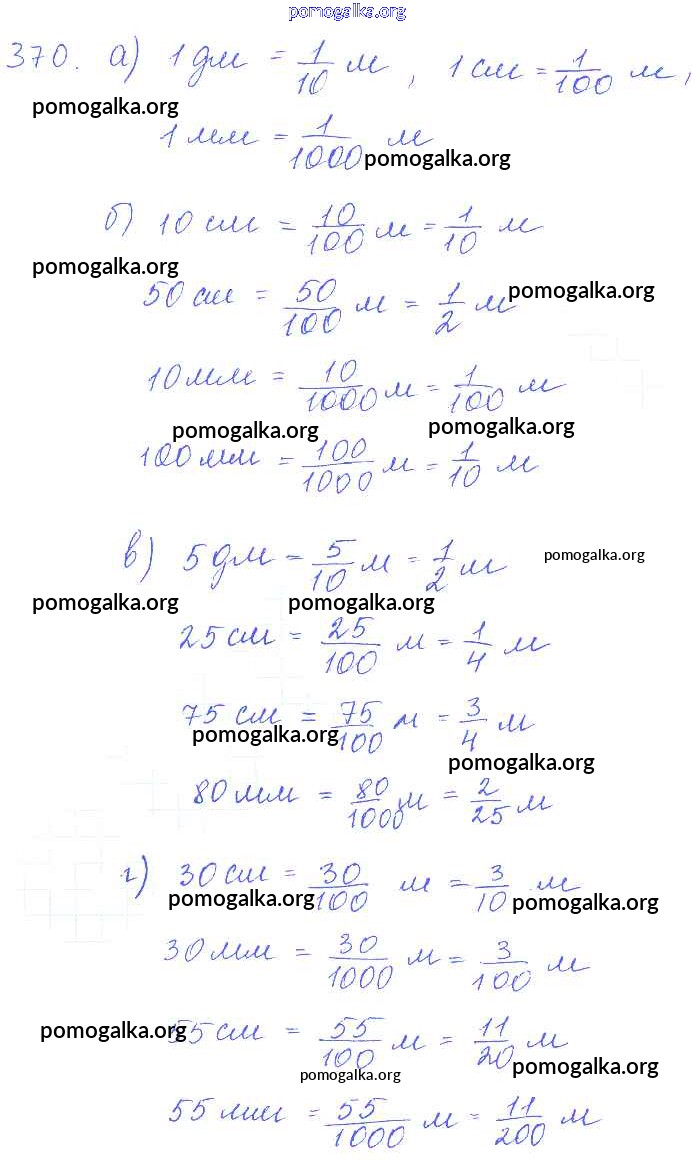 pomogalka.org
370. а) 1 дм = 1/10 м, 1 см = 1/100 м,
pomogalka.org
1 мм = 1/1000 м
pomogalka.org
б) 10 см = 10/100 м = 1/10 м
pomogalka.org
50 см = 50/100 м = 1/2 м
pomogalka.org
10 мм = 10/1000 м = 1/100 м
pomogalka.org pomogalka.org
100 мм = 100/1000 м = 1/10 м
в) 5 дм = 5/10 м = 1/2 м
pomogalka.org
pomogalka.org pomogalka.org
25 см = 25/100 м = 1/4 м
75 см = 75/100 м = 3/4 м
pomogalka.org
pomogalka.org
80 мм = 80/1000 м = 2/25 м
г) 30 см = 30/100 м = 3/10 м
pomogalka.org pomogalka.org
30 мм = 30/1000 м = 3/100 м
55 см = 55/100 м = 11/20 м
pomogalka.org
pomogalka.org
pomogalka.org
55 мм = 55/1000 м = 11/200 м